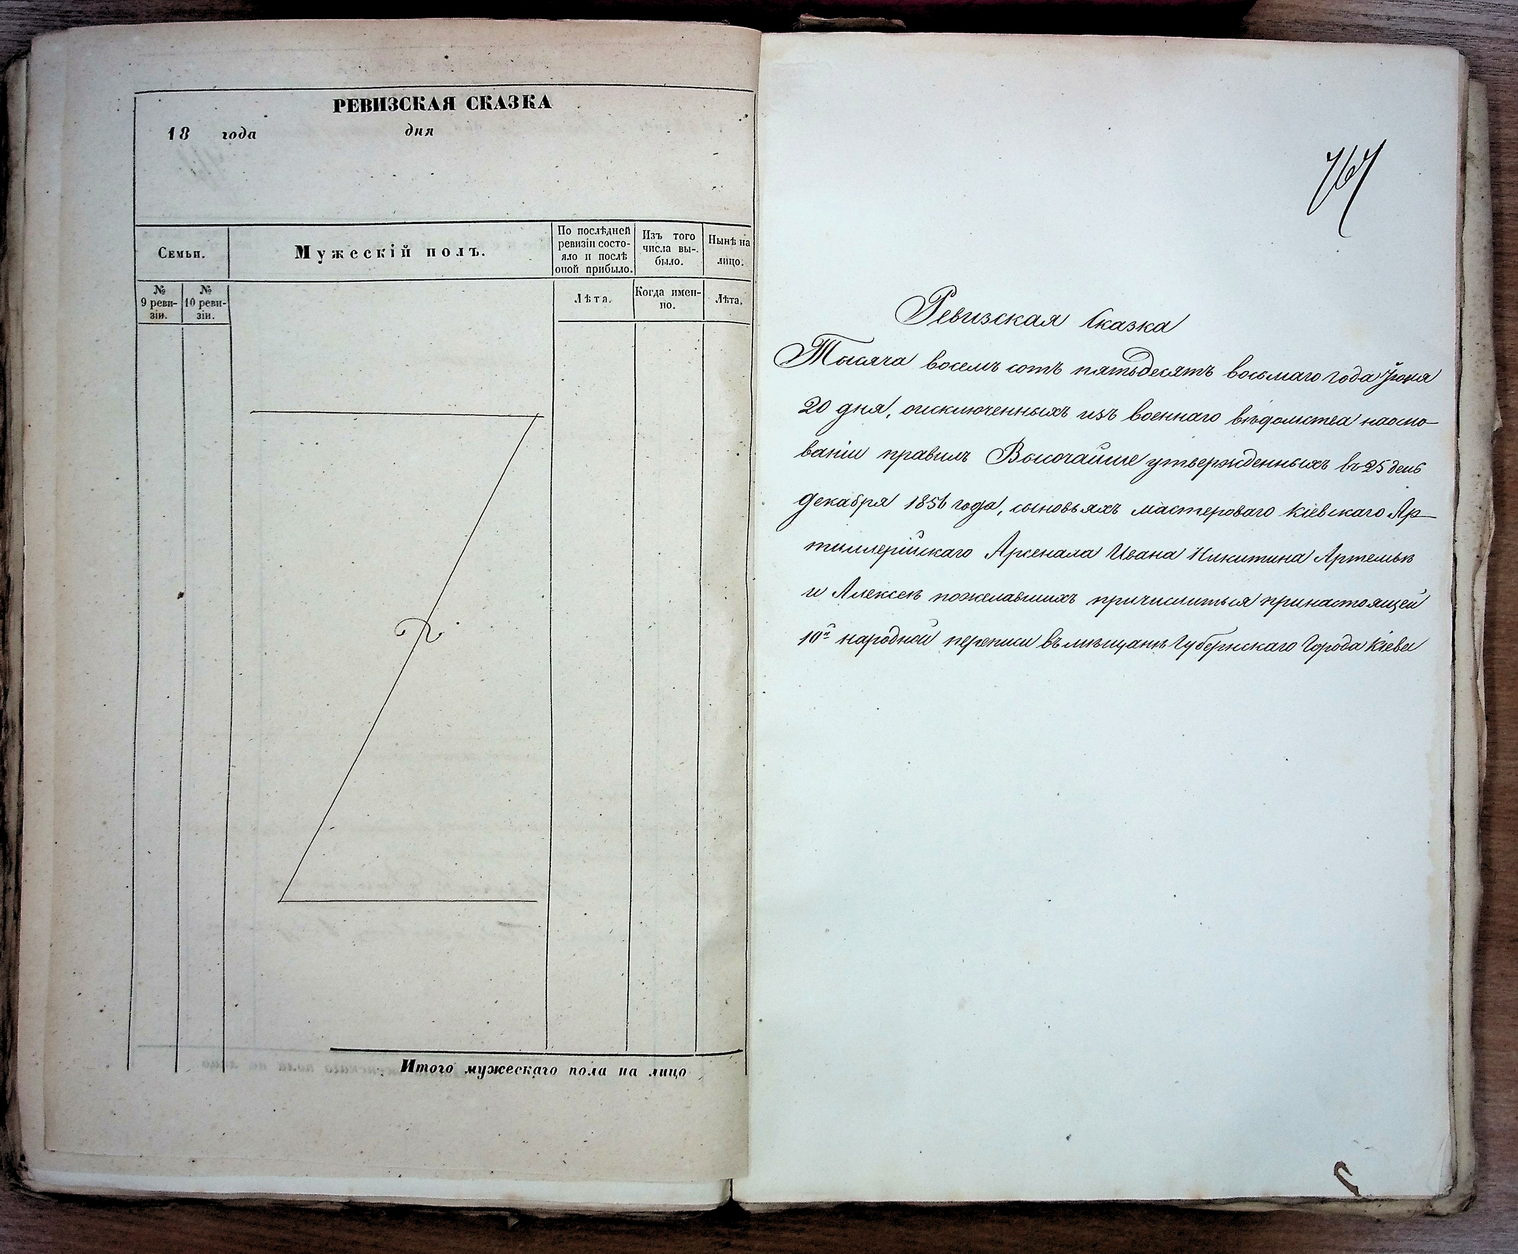 РЕВИЗСКАЯ СКАЗКА
18 года дня
Семьи.
№ 9 реви-
зіи.
№ 10 реви-
зіи.
Мужескій полъ.
По послѣдней
ревизіи состо-
яло и послѣ
оной прибыло.
Лѣта.
Изъ того
числа вы-
было.
Когда имен-
но.
Нынѣ на
лицо.
Лѣта.
Итого мужескаго пола на лицо
767
Ревизская Сказка
Тысяча восемь сотъ пятьдесятъ восьмаго года Іюня
20 дня, о исключенныхъ изъ военнаго вѣдомства на осно-
ваніи правилъ Высочайше утвержденныхъ въ 25 день
декабря 1856 года, сыновьяхъ мастероваго Кіевскаго Ар-
тиллерійскаго Арсенала Ивана Никитина Артемьѣ
и Алексеѣ пожелавшихъ причислиться при настоящей
10й народной переписи въ мѣщане Губернскаго Города Кіева